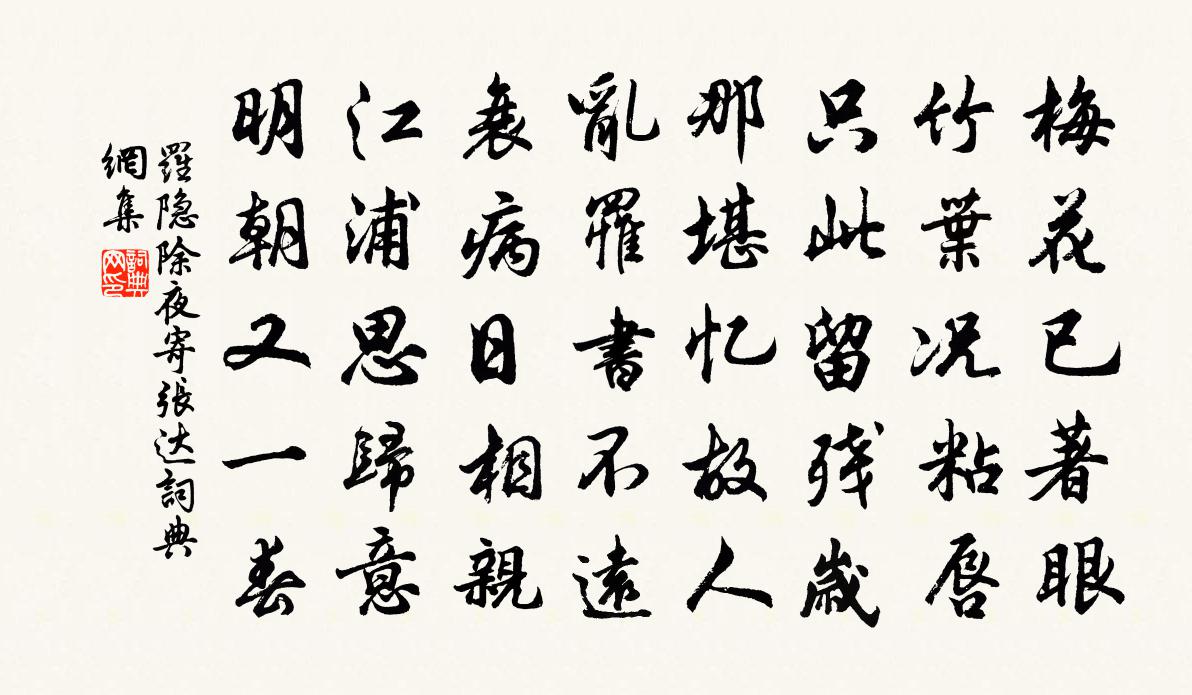 梅花已著眼
竹葉况粘唇
只此留残歲
那堪忆故人
亂罹書不遠
衰病日相親
江浦思歸意
明朝又一春
羅隐除夜寄張达詞典
網集
詞典
网印